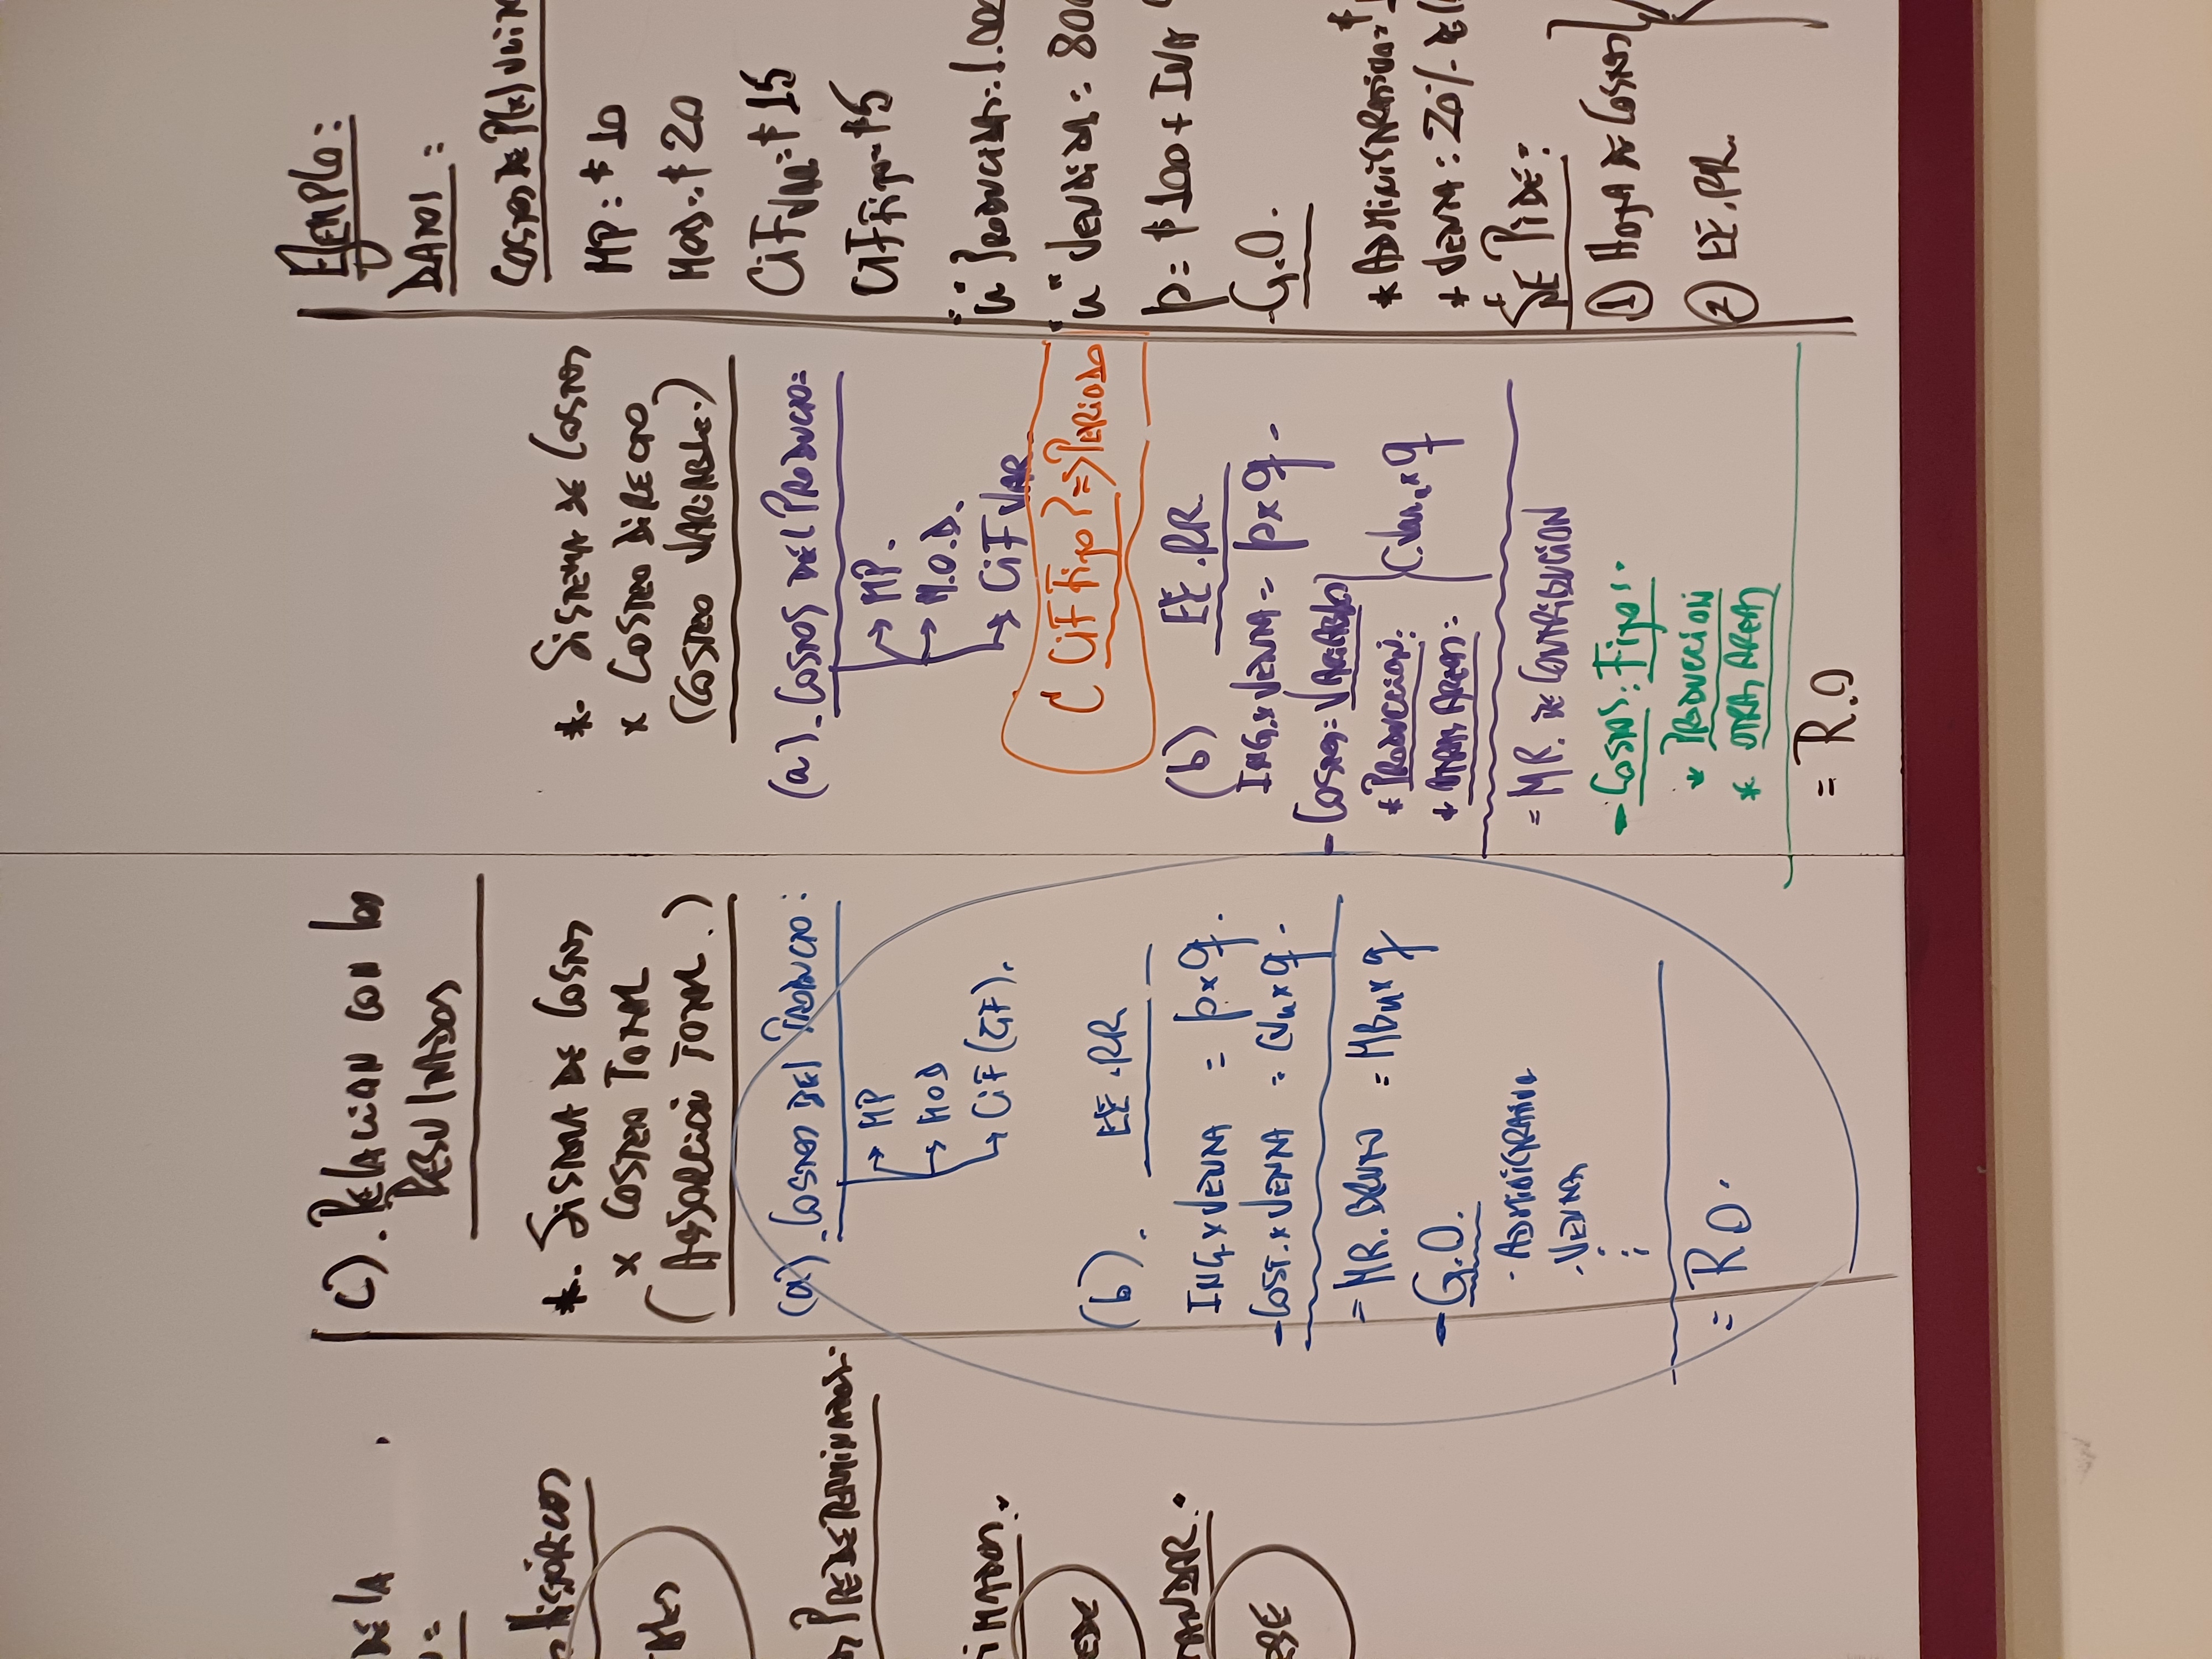 DE LA
Históricos
PREDETERMINADOS.
C). Relacion con los
Resultados
*. Sistema de Costos
x Costeo Total
(Absorcion Total.)
(a). Costos del Producto:
→ MP
→ MOD
→ CiF (GF).
(b). EE.RR
ING.xVenta = p x q.
- Cost.xVenta = CVu x q.
= MR. Bruto = MBu x q
- G.O.
· Administrativo
· Ventas
= R.O.
*. Sistema de Costos
x Costeo Directo
(Costeo Variable.)
(a). Costos del Producto:
→ MP.
→ M.O.D.
→ CiF VAR.
¿ CiF Fijo? => Periodo
(b) EE.RR
ING.xVenta = p x q.
- Costos: Variables
* Produccion:
* Otras Areas:
C.Varu x q
= MR. de Contribucion
- Costos: Fijos.
* Produccion
* Otras Areas
= R.O
Ejemplo:
Datos:
Costos de P(x)
MP: $10
MOD: $20
CiF Var: $15
CiF Fijo = $5
"u" Producidas: 1.00
"u" Vendidas = 800
p = $100 + IVA
- G.O.
* Administrativo = $
* Venta: 20% de
Se Pide:
① Hoja de Costos
② EE.RR.